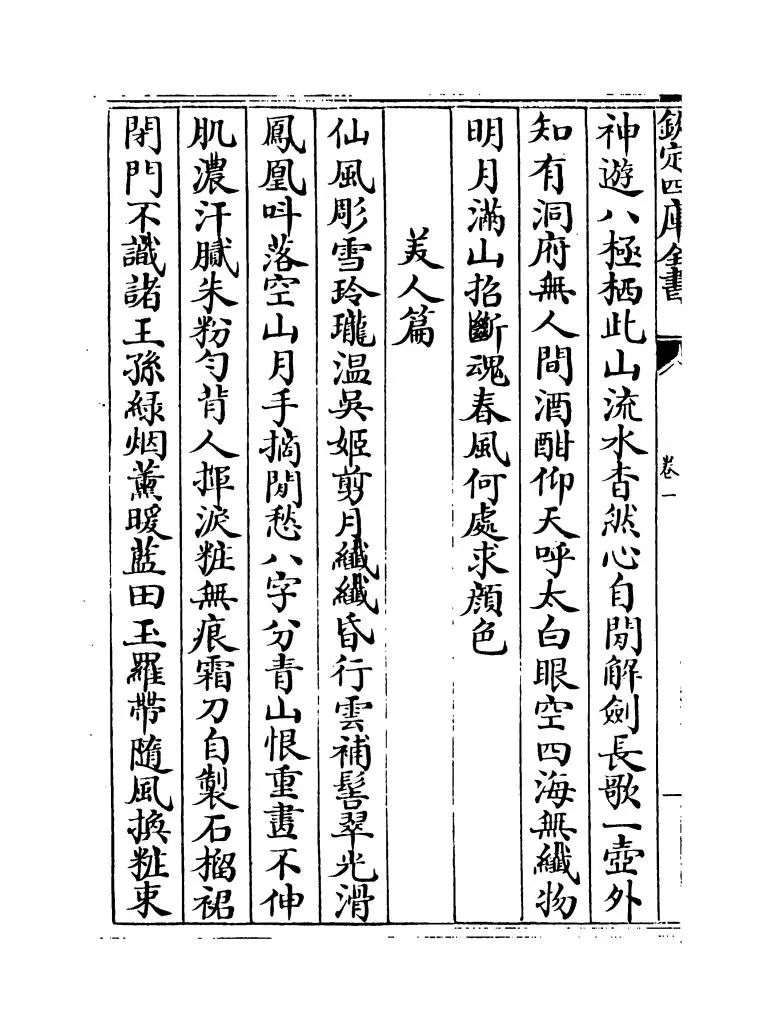 欽定四庫全書
卷一
神遊八極栖此山流水杳然心自閒解劍長歌一壺外
知有洞府無人間酒酣仰天呼太白眼空四海無纖物
明月滿山招斷魂春風何處求顔色
美人篇
仙風彫雪玲瓏温吳姬剪月纖纖昏行雲補髻翠光滑
鳳凰呌落空山月手摘閒愁八字分青山恨重畫不伸
肌濃汗膩朱粉勻背人揮淚粧無痕霜刀自製石榴裙
閉門不識諸王孫綠烟薰暖藍田玉羅帶隨風換粧束